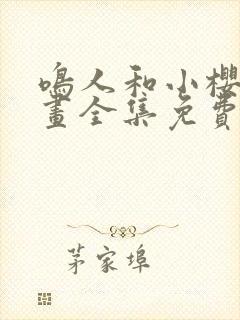 鳴人和小櫻
畫全集免費
茅家埠